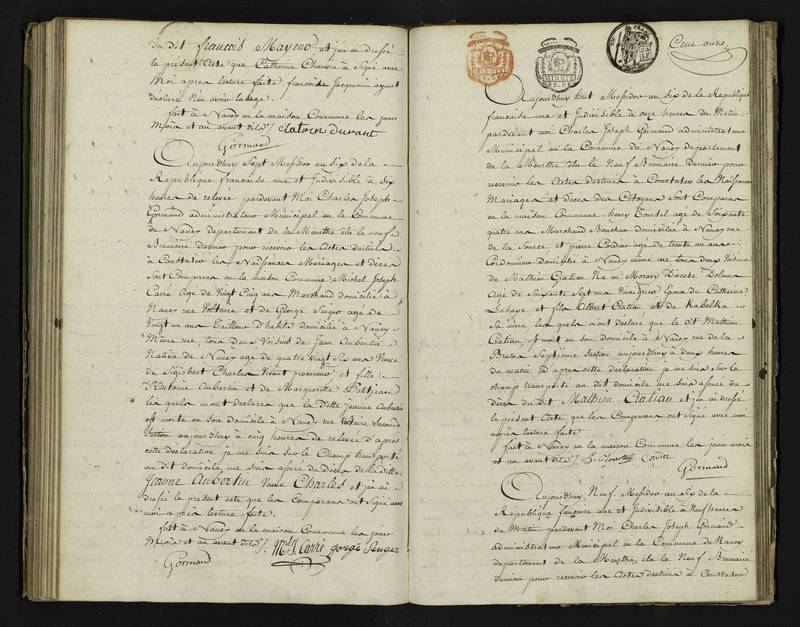 du dit françois Mayeur et j'ai dressé
le presant Acte que Catherine Chauvin à Signé avec
Moi apres lecture faite, francoise Jacquemin ayant
declaré N'en avoir l'usage.
fait à Nancy en la maison Commune les jour
Mois et an avant dits /. Clatvin durant
Gormand
Aujourdhuy Sept Messidor an Six de la
Republique française une et Indivisible à Six
heures de relevée pardevant Moi Charles Joseph
Gormand administrateur Municipal en la Commune
de Nancy departement de la Meurthe élu le neuf
Brumaire dernier pour recevoir les Actes destinés
à Constater les Naissances Mariages et Décès
Sont Comparus en la maison Commune Michel Joseph
Carré Age de Vingt Cinq ans Marchand domicilié à
Nancy rue Voltaire et de George Singer age de
Vingt neuf ans tailleur d'habits domicilié à Nancy
Même rue, tous Deux Voisins de Jean Aubertin
Nativé de Nancy age de quatre vingt Six ans Veuve
de Sigisbert Charles Vivant procureur et fille
d'Antoine Aubertin et de Marguerite Petitjean
les quels mont declarés que la Ditte Jeanne Aubertin
est morte en Son domicile à Nancy rue Voltaire, Seconde
Section aujourdhuy à cinq heures de relevée d'apres
cette declaration je me suis sur le Champ transporté
au dit domicile me suis assuré du Décès de la ditte
Jeanne Aubertin Veuve Charles et j'ai
dressé le présent acte que les Comparans ont Signé avec
moi après lecture faite.
fait à Nancy en la maison Commune les jour
Mois et an avant dits /. M. J. Carré george Senger
Gormand
MINUTE
MINUTE
Cent onze
Aujourdhuy huit Messidor an Six de la Republique
française une et Indivisible à onze heures du Matin
pardevant moi Charles Joseph Gormand administrateur
Municipal en la Commune de Nancy departement
de la Meurthe élu le Neuf Brumaire dernier pour
recevoir les Actes destinés à Constater les Naissances
Mariages et Décès des Citoyens Sont Comparus
en la maison Commune henry Tourtel age de Soixante
quatre ans Marchand Boucher domicilié à Nancy rue
de la Source et pierre Cordier age de trente un ans
Cordonnier domicilié à Nancy même rue tous deux Voisins
de Mathieu Cratian Né en Moravy Diocese Dolmer
Age de Soixante Sept ans Epoux de Catherine
Lahaye et fils Albert Cratian et de Kabelka
Sa mère les quels mont declaré que le dit Mathieu
Cratian, est mort en son domicile à Nancy rue de la
Septieme section aujourdhuy à deux heures
du matin, D'apres cette declaration je me suis sur le
champ transporté au dit domicile me suis assuré du
décès du dit Mathieu Cratian et j'ai dressé
le present Acte que les Comparans ont Signé avec moi
apres lecture faite
fait à Nancy en la maison Commune les jour mois
et an avant dits /. h. Tourtel Cordier
Gormand
Aujourdhuy, Neuf Messidor an Six de la
Republique française une et Indivisible à Neuf heures
du Matin pardevant Moi Charles Joseph Gormand
administrateur Municipal en la Commune de Nancy
departement de la Meurthe, élu le Neuf Brumaire
dernier pour recevoir les Actes destinés à Constater